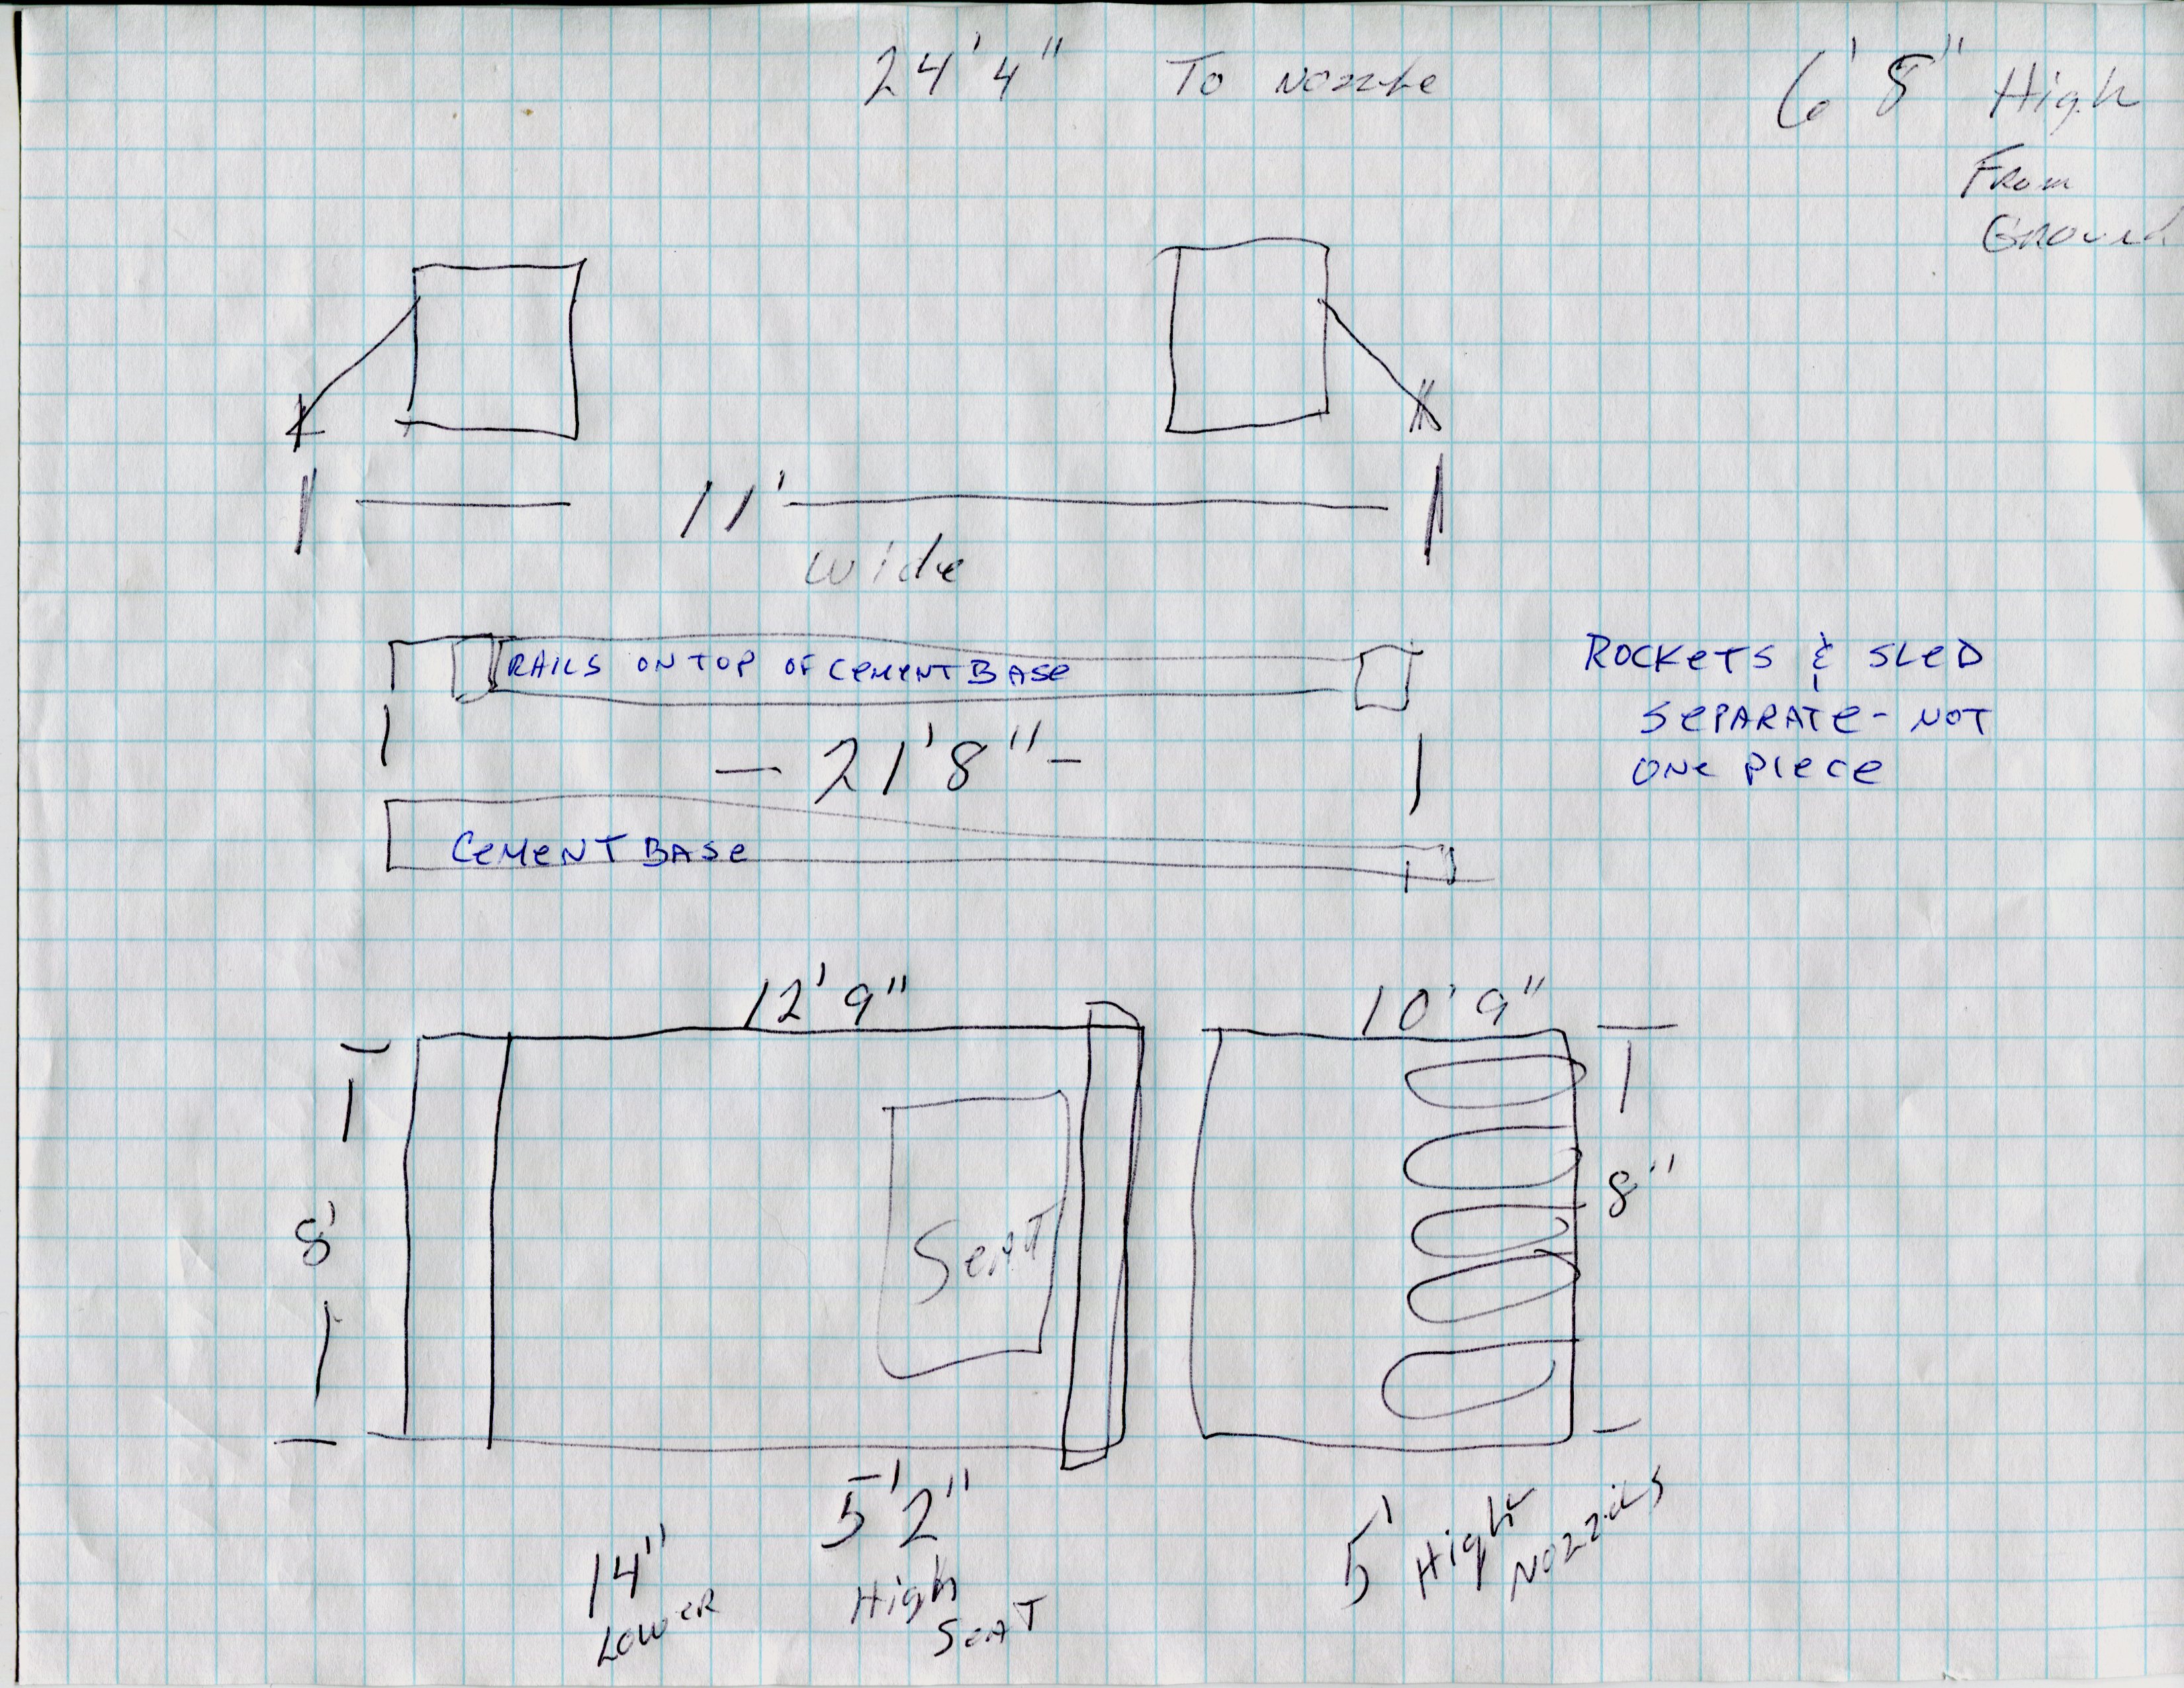 24'4" To Nozzle
6'8" High
From
Ground
11'
Wide
RAILS ON TOP OF CEMENT BASE
ROCKETS & SLED
SEPARATE - NOT
ONE PIECE
- 21'8" -
CEMENT BASE
12'9"
10'9"
8'
Seat
8"
14"
Lower
5'2"
High
Seat
5' High
Nozzils